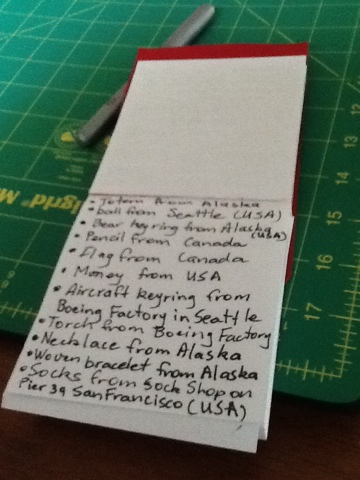 • Totem from Alaska
• ball from Seattle (USA)
• Bear keyring from Alaska (USA)
• Pencil from Canada
• Flag from Canada
• Money from USA
• Aircraft keyring from
Boeing Factory in Seattle
• Torch from Boeing Factory
• Necklace from Alaska
• Woven bracelet from Alaska
• Socks from Sock Shop on
Pier 39 San Francisco (USA)
grid
12
13
14
15
16
17